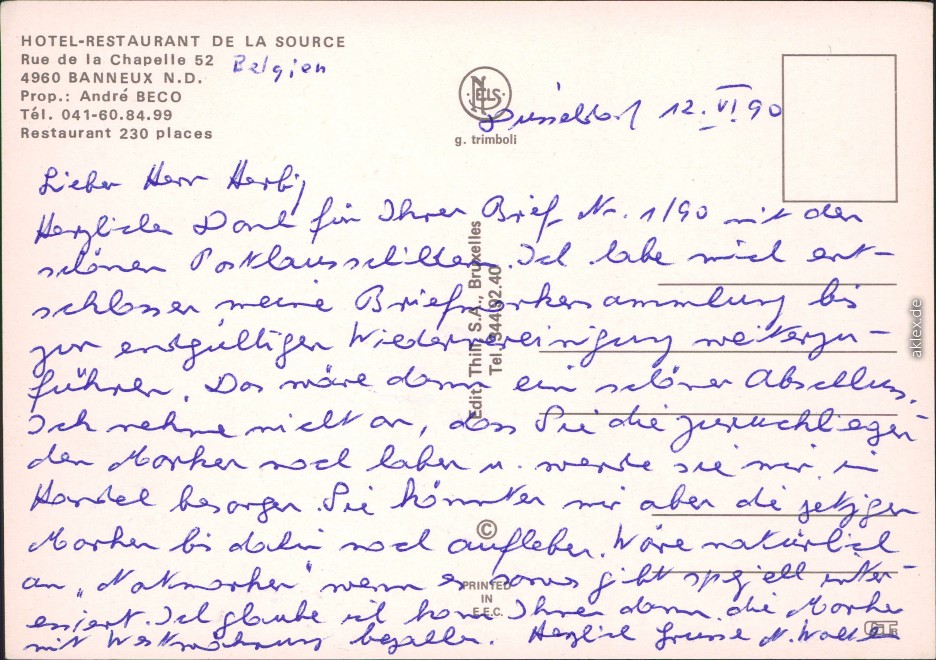 HOTEL-RESTAURANT DE LA SOURCE
Rue de la Chapelle 52
4960 BANNEUX N.D.
Belgien
Prop.: André BECO
Tél. 041-60.84.99
Restaurant 230 places
NELS
g. trimboli
Düsseldorf 12. VI. 90
Lieber Herr Herbig
Herzlichen Dank für Ihren Brief Nr. 1/90 mit den
schönen Posthausschildern. Ich habe mich ent-
schlossen meine Briefmarkensammlung bis
zur endgültigen Wiedervereinigung weiterzu-
führen. Das wäre dann ein schöner Abschluss.
Ich nehme nicht an, dass Sie die zurückliegen-
den Marken noch haben u. werde sie mir im
Handel besorgen. Sie könnten mir aber die jetzigen
Marken bis dahin noch aufheben. Wäre natürlich
an "Notmarken" wenn es sowas gibt speziell inter-
essiert. Ich glaube ich kann Ihnen dann die Marken
mit Westwährung bezahlen. Herzlich Grüsse N.
Edit. Thill, S.A., Bruxelles
Tel. 344.92.40
©
PRINTED
IN
E.E.C.
aklex.de